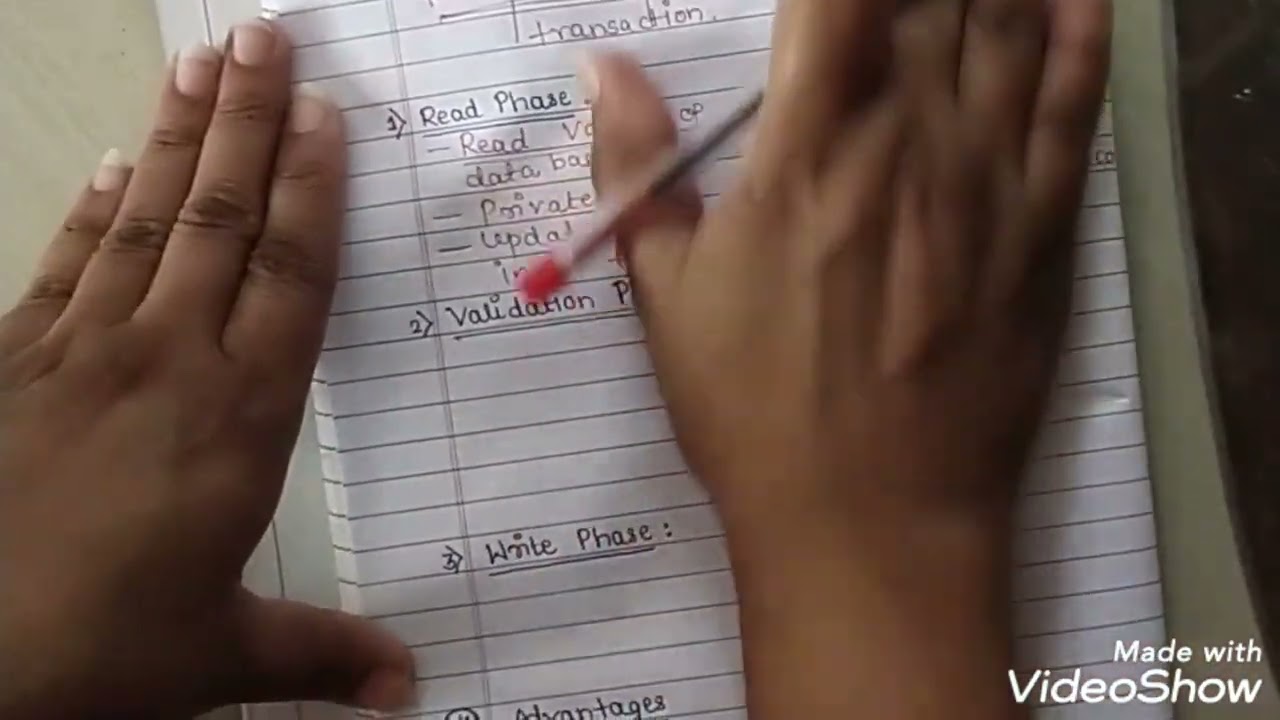 transaction.
1) Read Phase
— Read
data bas
— Private
— Updat
in
2) Validation P
3) Write Phase :
Advantages
Made with
VideoShow